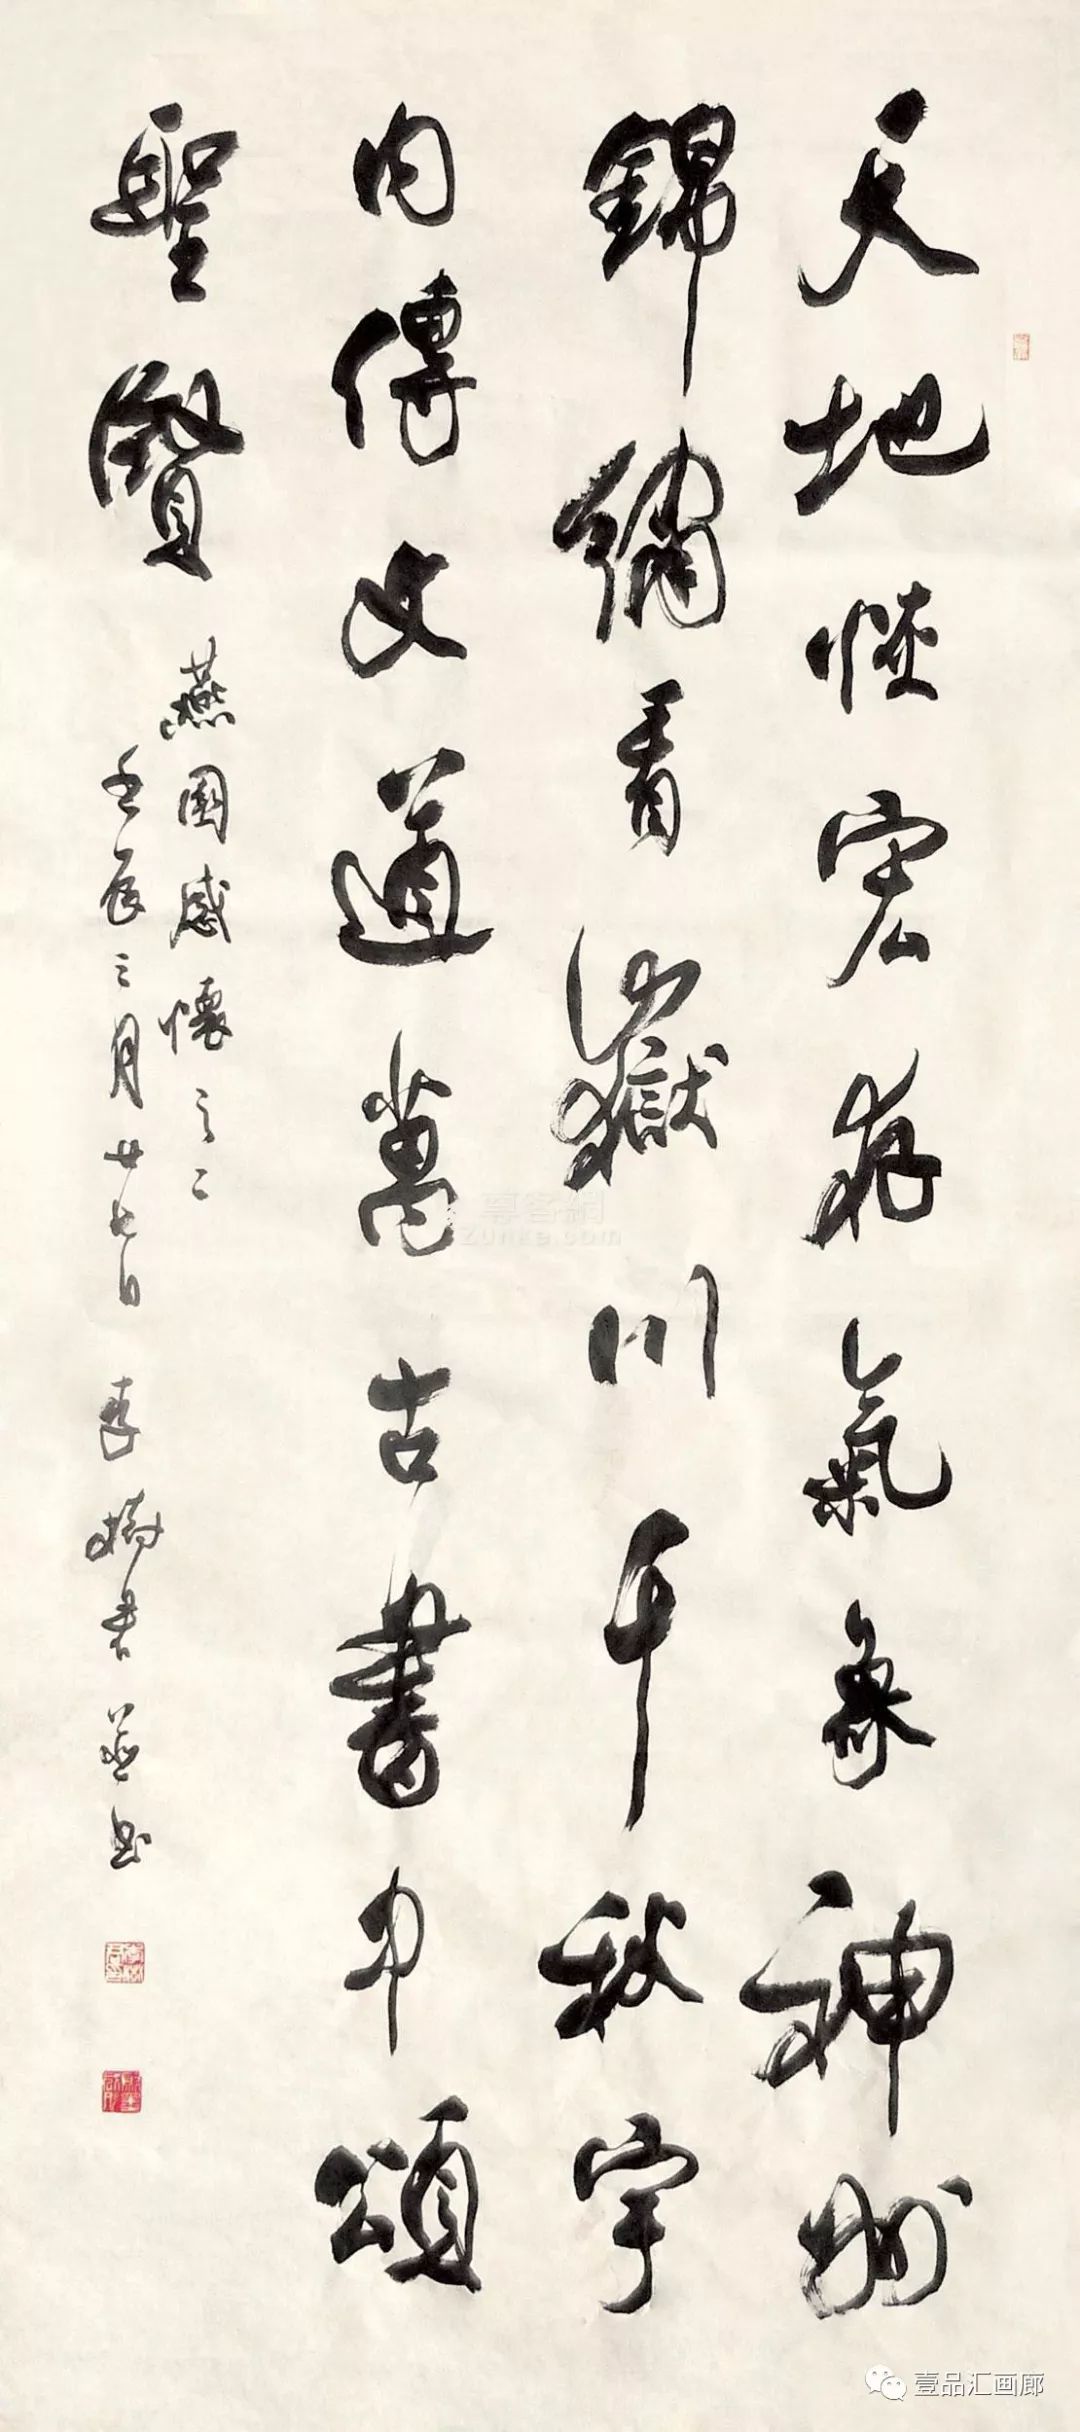 天地恢宏存氣象神州
錦繡看嶽川千秋宇
内傳文道萬古書中頌
聖賢
燕園感懷之二
壬辰三月廿七日 李樹君並书
尊客網
Zunke.com
壹品汇画廊